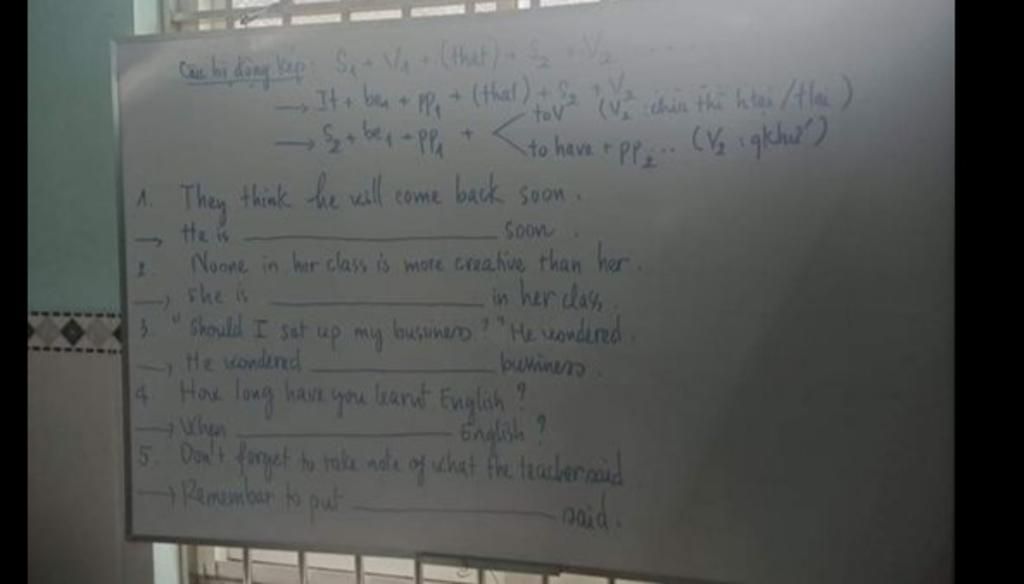 Câu bị động kép: S1 + V1 + (that) + S2 + V2 ....
→ It + be1 + pp1 + (that) + S2 + V2
→ S2 + be1 + pp1 + < to V (V2 : chia thì htại / tlai)
to have + pp2 ... (V2 : qkhứ)
1. They think he will come back soon.
→ He is ____________ soon.
2. Noone in her class is more creative than her.
→ She is ____________ in her class.
3. "Should I set up my bussiness?" He wondered.
→ He wondered ____________ bussiness.
4. How long have you learnt English?
→ When ____________ English?
5. Don't forget to take note of what the teacher said
→ Remember to put ____________ said.